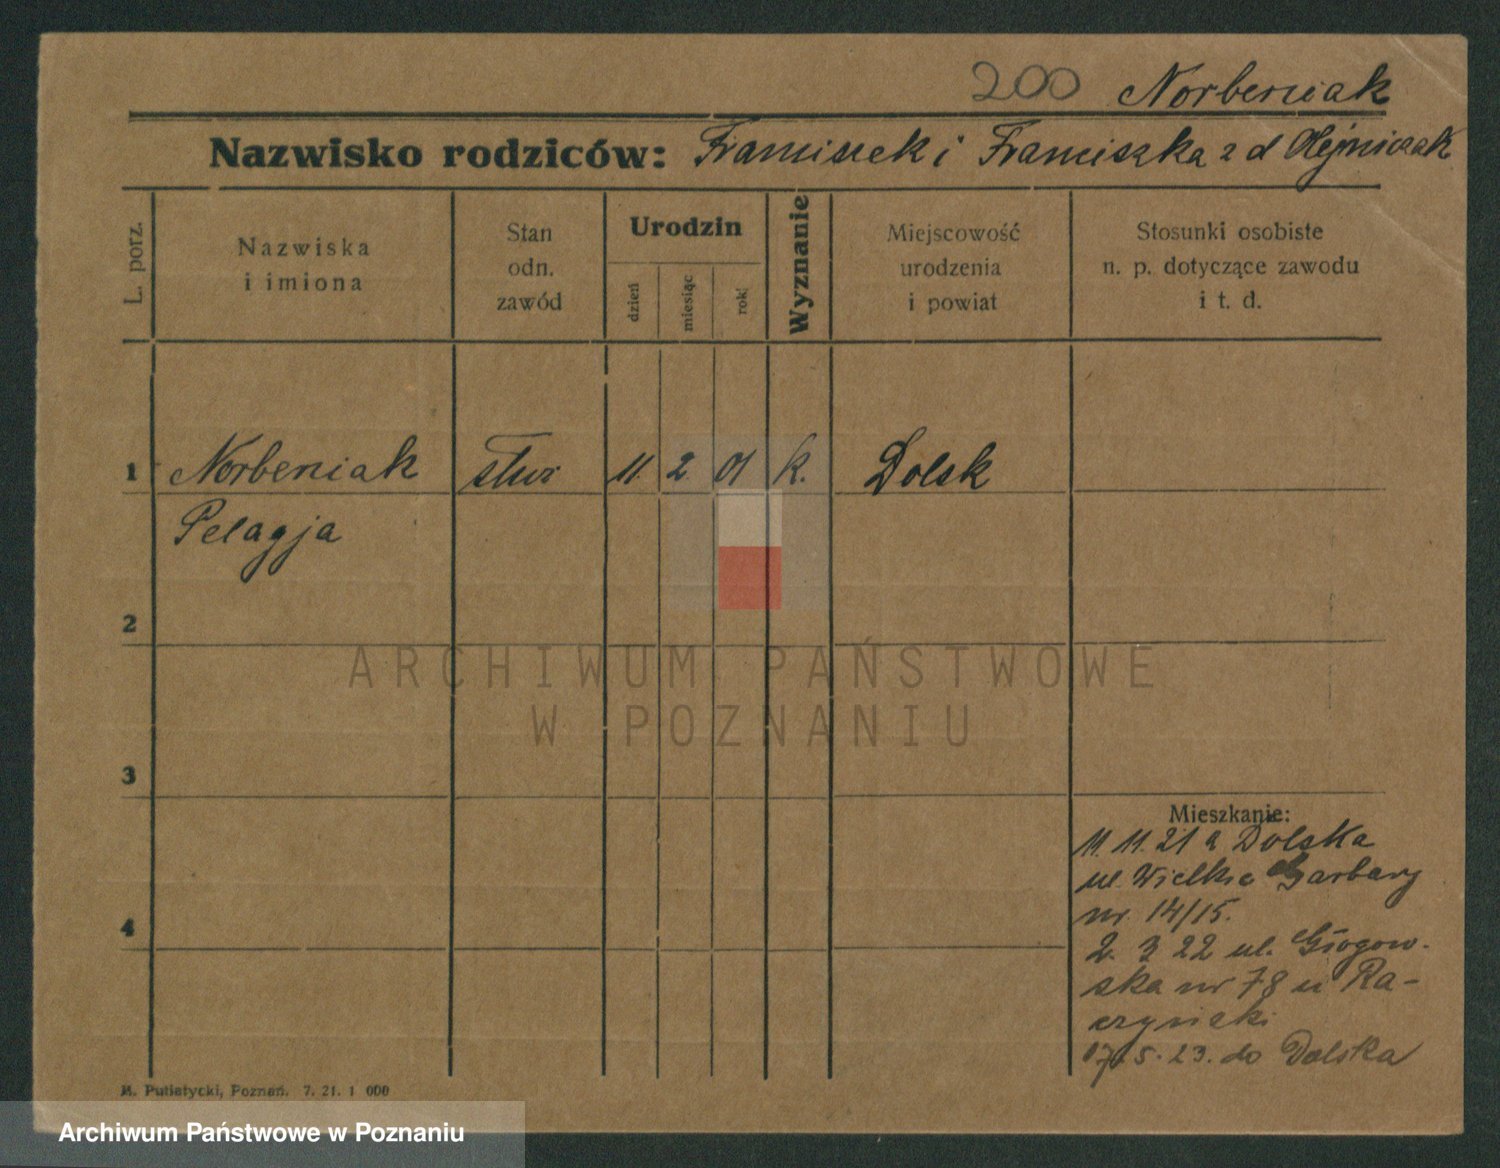 200 Norbeniak
Nazwisko rodziców: Franciszek i Franciszka z d Olejniczak
L. porz.
Nazwiska
i imiona
Stan
odn.
zawód
Urodzin
dzień
miesiąc
rok
Wyznanie
Miejscowość
urodzenia
i powiat
Stosunki osobiste
n. p. dotyczące zawodu
i t. d.
1 Norbeniak służ 11. 2. 01 k. Dolsk
Pelagja
2
3
4
Mieszkanie:
11. 11. 21 a Dolska
ul. Wielkie Garbary
nr. 14/15.
2. 3 22 ul. Głogow-
ska nr 78 u Ra-
czyński
17. 5. 23. do Dolska
M. Putiatycki, Poznań. 7. 21. 1 000
ARCHIWUM PAŃSTWOWE
W POZNANIU
Archiwum Państwowe w Poznaniu